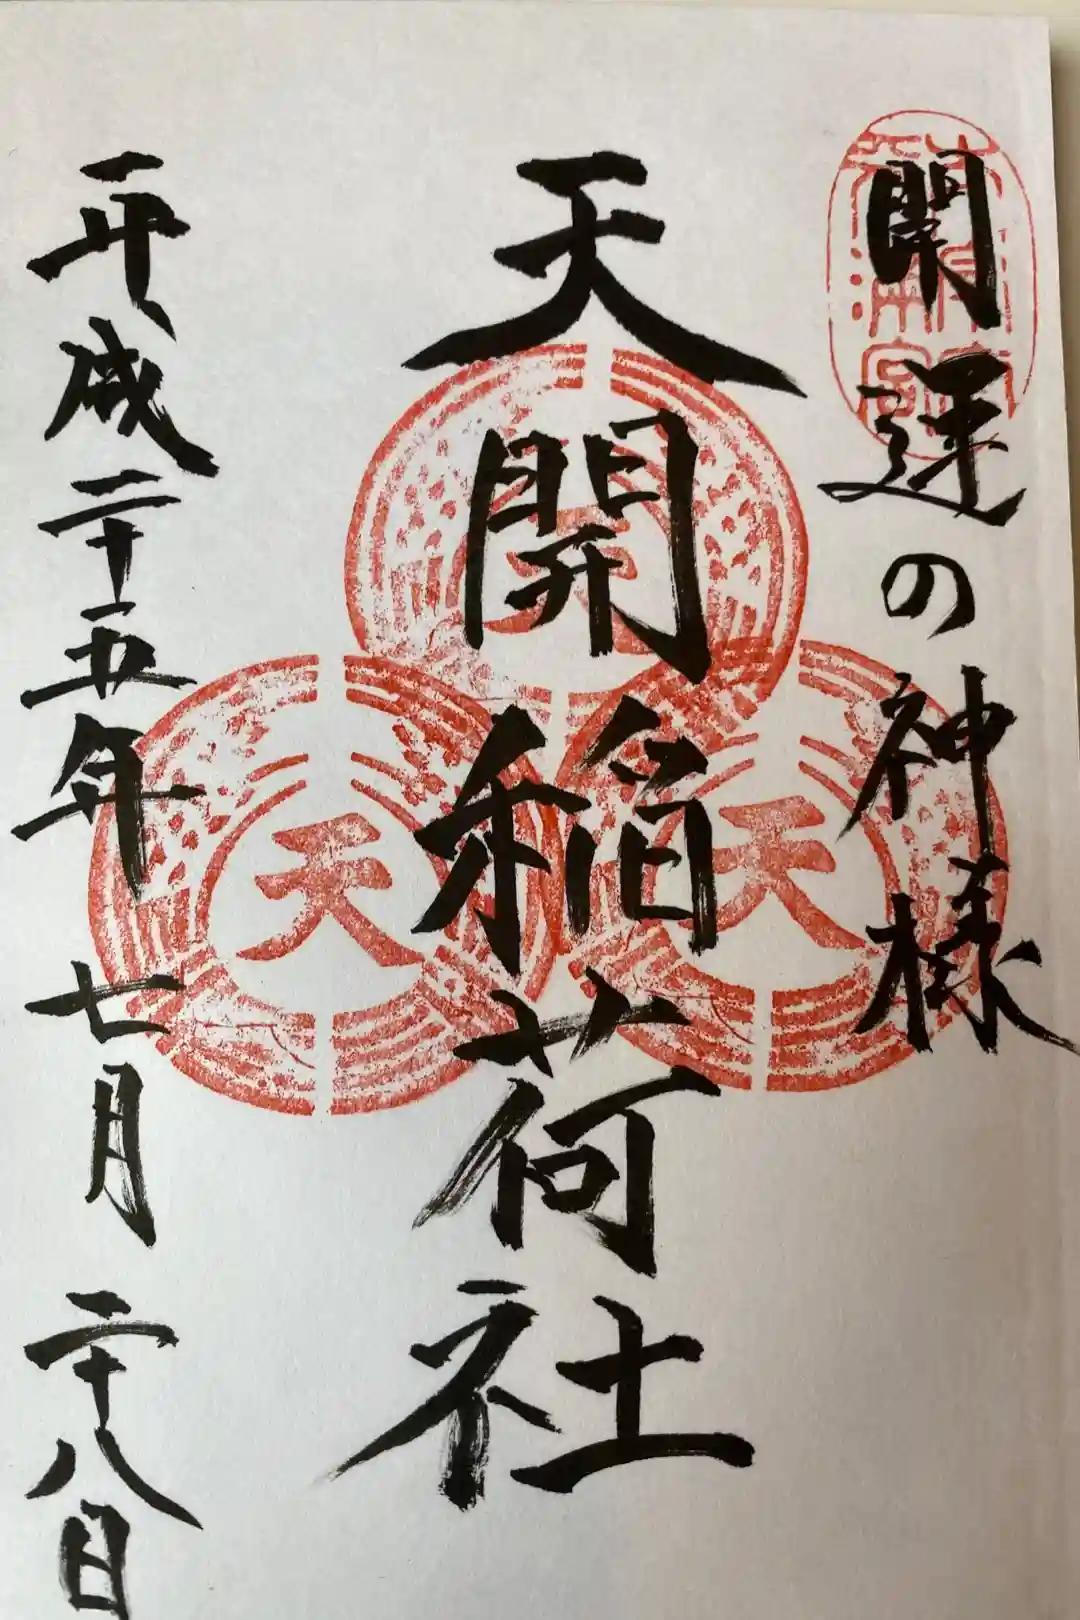 開運の神様
天開稲荷社
平成二十五年七月二十八日
天
天